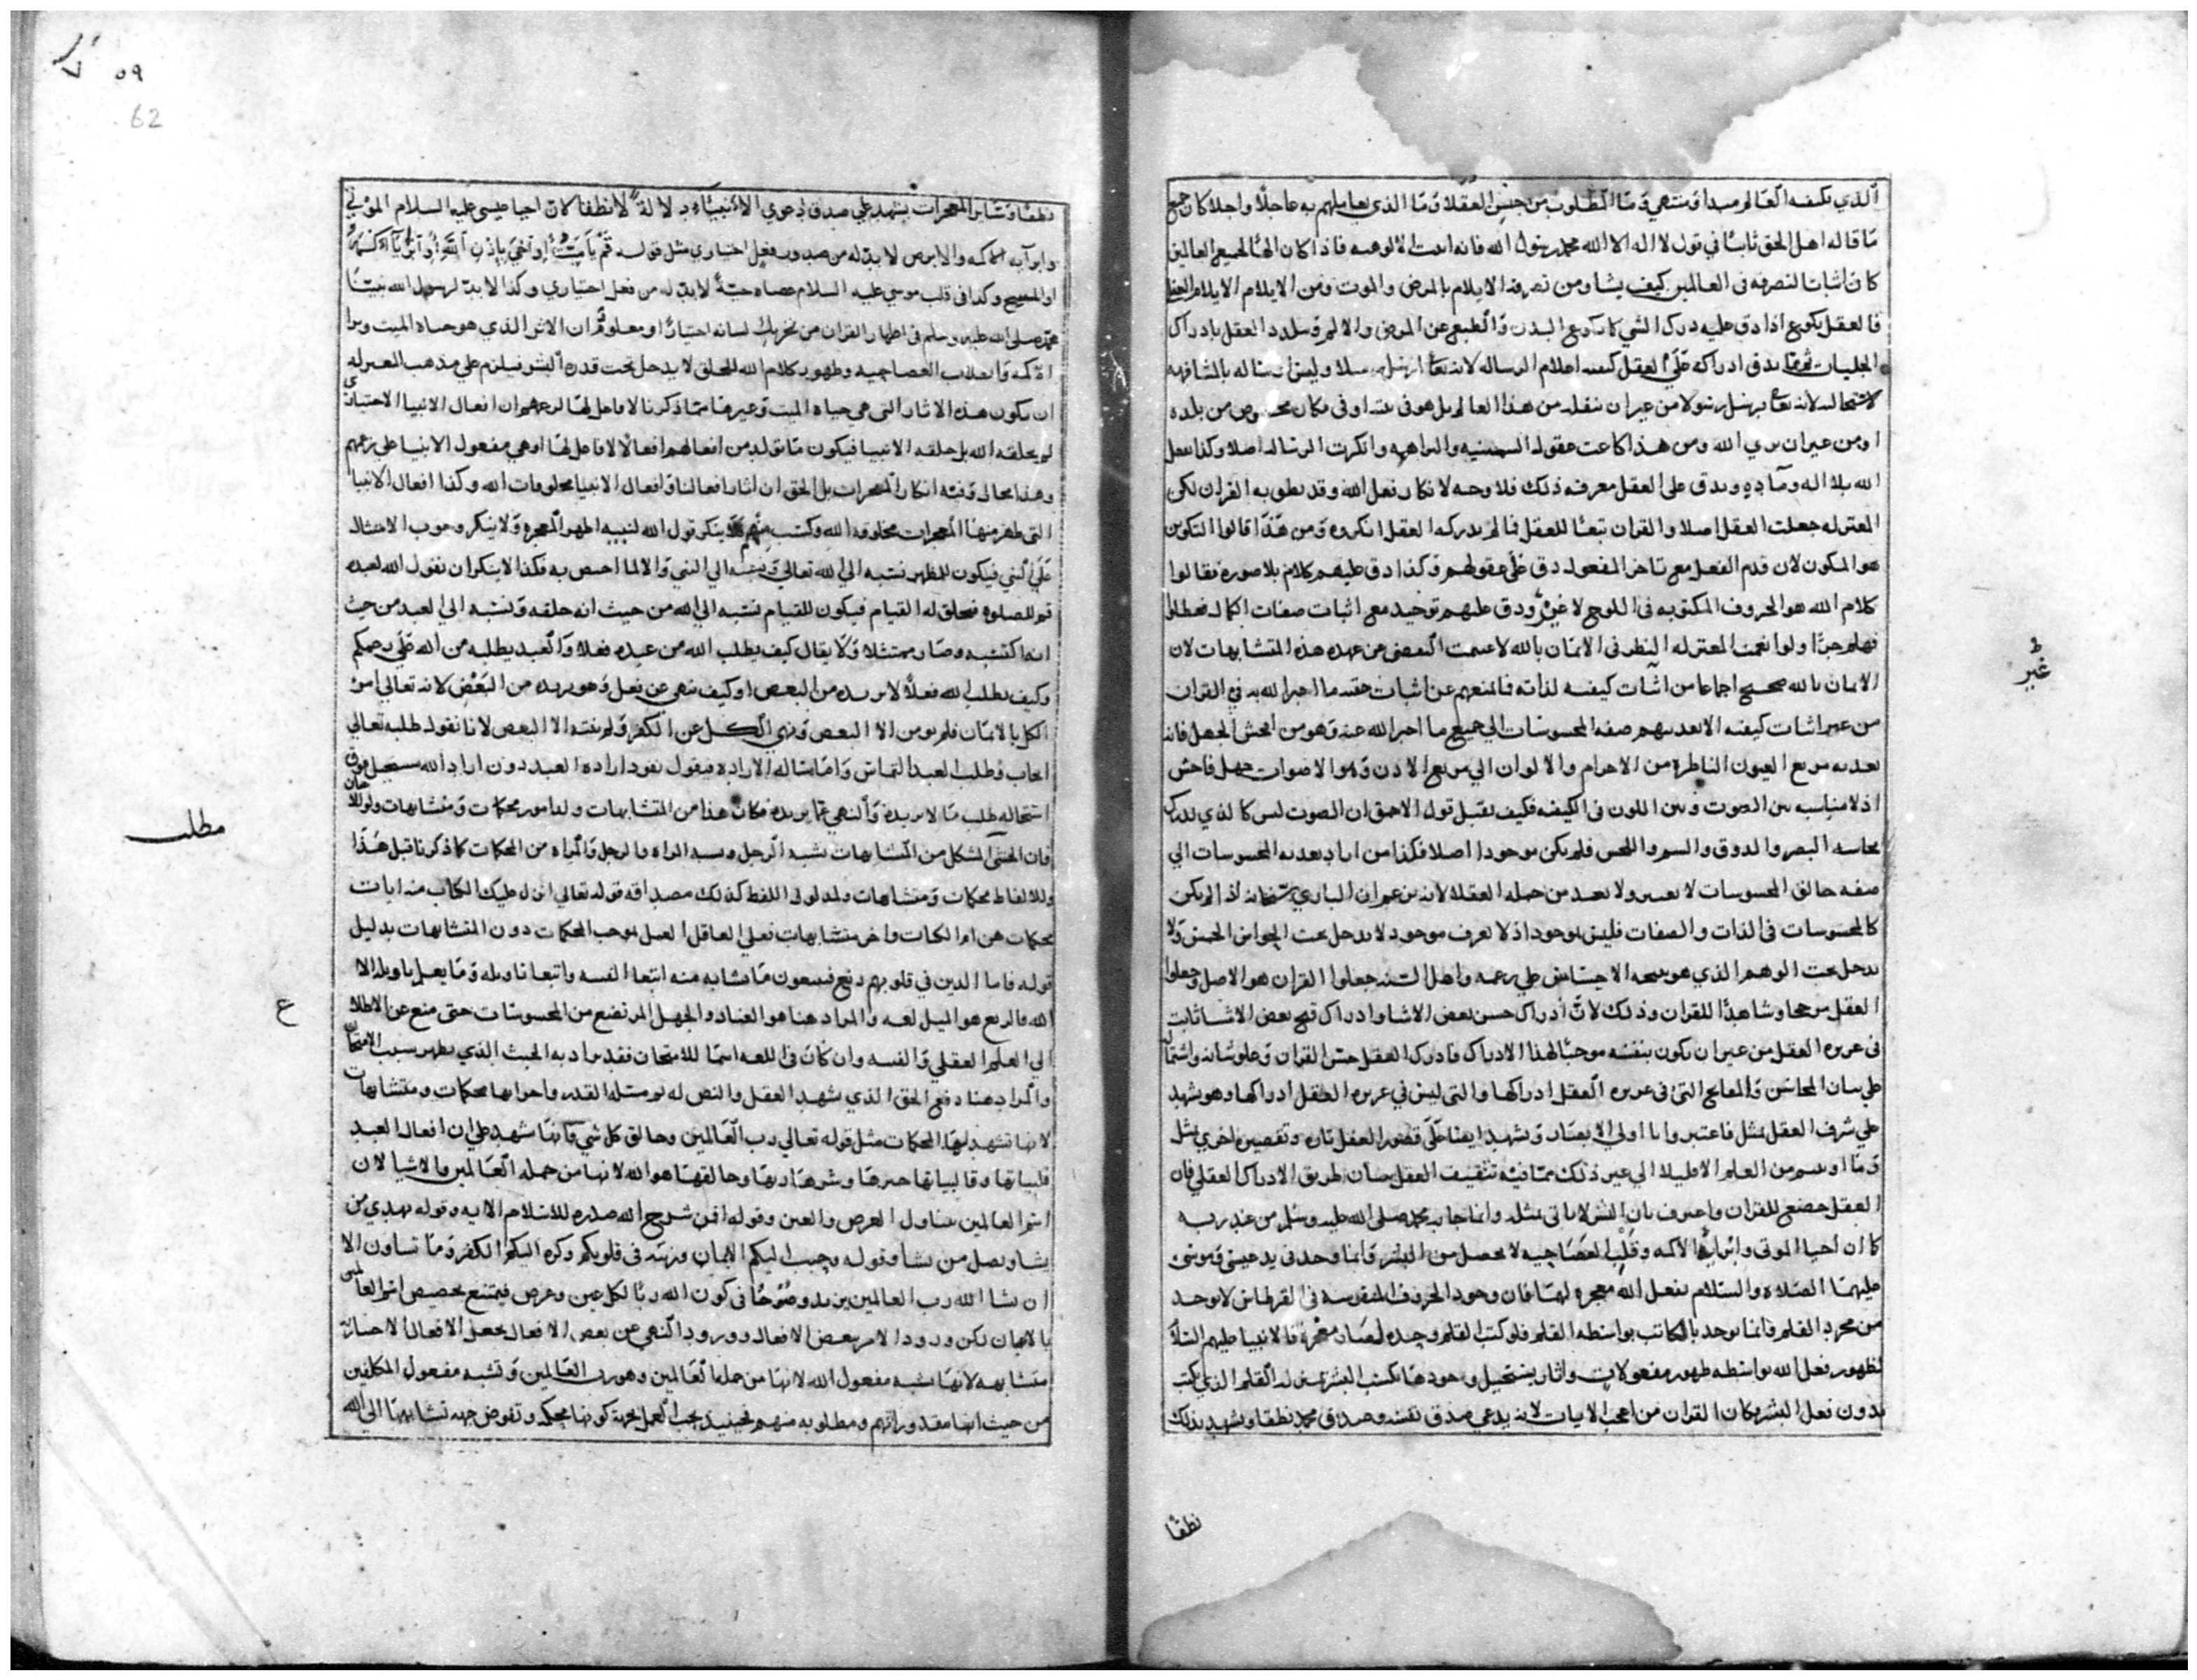 الذي كيفه العالم مبدا ومنتهي وما المطلوب من جنس العقلا وما الذي يعاملهم به عاجلا واجلا كان جميع
ما قاله اهل الحق ثابتا في قول لا اله الا الله محمد رسول الله فانه اثبت الالوهيه فاذا كان الها لجميع العالمين
كان اثباتا لتصرفه في العالمين كيف يشا ومن تصرفه الايلام بالمرض والموت ومن الايلام الايلام
فالعقل اذا دق عليه درك الشي كما البدن والطبع عن المرض والالم وتلذذ العقل بادراك
الجليات ومما يدق ادراكه علي العقل اعلام الرساله لانه تعالى ارسل رسلا وليس رساله بالمشافهه
لاستحاله لانه تعالى يرسل رسولا من غير ان ينقله من هذا العالم بل هو في بيته او في مكان مخصوص من بلده
او من غير ان يري الله ومن هذا كاعت عقول السمنيه والبراهمه وانكرت الرساله اصلا وكذا فعل
الله بلا اله وماده ودق على العقل معرفه ذلك فلا وجه لانكار فعل الله وقد نطق به القران لكن
المعتزله جعلت العقل اصلا والقران تبعا للعقل فما لم يدركه العقل انكروه ومن هذا قالوا التكوين
هو المكون لان قدم الفعل مع تاخر المفعول دق علي عقولهم وكذا دق عليهم كلام بلا صوره فقالوا
كلام الله هو الحروف المكتوبه في اللوح لا غير ودق عليهم توحيد مع اثبات صفات الكمال فعطلوا
فهلم جرا ولو انعمت المعتزله النظر في الايمان بالله لاعتصمت البعض من عهده هذه المتشابهات لان
الايمان بالله صحيح اجماعا من اثبات كيفيه لذاته فما منعهم عن اثبات حقيه ما اخبر الله به في القران
من غير اثبات كيفيه الا تعديهم صفه المحسوسات الي جميع ما اخبر الله عنه وهو من افحش الجهل فانه
تعديه من مع العيون الناظره من الاجرام والالوان الي مربع الاذن وهو الاصوات جهل فاحش
اذ لا مناسبه بين الصوت وبين اللون في الكيفيه فكيف يقبل قول الاحمق ان الصوت ليس كالذي يدرك
بحاسه البصر والذوق والشم واللمس فلم يكن موجودا اصلا فكذا من اراد تعديه المحسوسات الي
صفه خالق المحسوسات لا يعتبر ولا يعد من جمله العقلا لانه يزعم ان الباري سبحانه اذا لم يكن
كالمحسوسات في الذات والصفات فليس بموجود اذ لا نعرف موجود لا يدخل تحت الحواس الخمس ولا
يدخل تحت الوهم الذي هو نتيجه الاحساس علي زعمه واهل السنه جعلوا القران هو الاصل وجعلوا
العقل مرجحا وشاهدا للقران وذلك لان ادراك حسن بعض الاشيا وادراك قبح بعض الاشيا ثابت
في غريزه العقل من غير ان يكون بنفسه موجبا لهذا الادراك فادرك العقل حسن القران وعلو شانه واشتماله
علي بيان المحاسن والقبايح التي في غريزه العقل ادراكها والتي ليس في غريزه العقل ادراكها وهو يشهد
علي شرف العقل بمثل فاعتبروا يا اولي الابصار ويشهد ايضا علي قصور العقل تاره وتقصير اخري بمثل
وما اوتيتم من العلم الا قليلا الي غير ذلك مما فيه تثقيف العقل ببيان طريق الادراك العقلي فان
العقل خضع للقران واعترف بان البشر لا ياتي بمثله وانما جا به محمد صلى الله عليه وسلم من عند ربه
كما ان احيا الموتي وابرا الاكمه وقلب العصا حيه لا يحصل من البشر وانما وجد في يد عيسي وموسي
عليهما الصلاه والسلام بفعل الله معجزه لهما فان وجود الحروف المنقوشه في القرطاس لا يوجد
من مجرد القلم وانما يوجد بالكاتب بواسطه القلم فلو كتب القلم وحده لصار معجزه فالانبيا عليهم السلا
لظهور فعل الله بواسطه ظهور مفعولات واثار يستحيل وجودها بكسب البشر بمنزله القلم الذي يكتب
بدون فعل البشر فكان القران من اعجب الايات لانه يدعي صدق نفسه وصدق محمد نطقا ويشهد بذلك
غير
نطقا
٥٩
62
نطقا وساير المعجزات يشهد علي صدق دعوي الانبياء دلالة لا نطقا كما ان احيا عيسى عليه السلام الموتي
وابرايه الاكمه والابرص لا بد له من صدور فعل اختياري مثل قوله قم يا ميت او احي باذن الله او ابرا يا اكمه
او المسح وكذا في قلب موسي عليه السلام عصاه حية لا بد له من فعل اختياري وكذا لا بد لرسول الله نبينا
محمد صلى الله عليه وسلم في اظهار القران من تحريك لسانه اختيارا ومعلوم ان الاثر الذي هو حياه الميت وبرا
الاكمه وانقلاب العصا حيه وظهور كلام الله للخلق لا يدخل تحت قدره البشر فيلزم علي مذهب المعتزله
ان يكون هذه الاثار التي هي حياه الميت وغيرها مما ذكرنا لا فاعل لها لزعمهم ان افعال الانبيا الاختياري
لم يخلقه الله بل خلقه الانبيا فيكون ما تولد من افعالهم افعالا لا فاعل لها او هي مفعول الانبيا علي زعمهم
وهذا محال وفيه انكار المعجزات بل الحق ان اثار افعالنا وافعال الانبيا مخلوقات الله وكذا افعال الانبيا
التي ظهر منها المعجزات مخلوقه لله وكسب منهم فلا ينكر قول الله لنبيه اظهر المعجزه ولا ينكر وجوب الامتثال
علي النبي فيكون للمظهر نسبه الي الله تعالي ونسبه الي النبي والا لما اختص به فكذا لا ينكر ان نقول الله لعبده
قم للصلوه فخلق له القيام فيكون للقيام نسبه الي الله من حيث انه خلقه ونسبه الي العبد من حيث
انه اكتسبه وصار ممتثلا ولا يقال كيف يطلب الله من عبده فعلا والعبد يطلبه من الله علي زعمكم
وكيف يطلب الله فعلا لا يريده من البعض او كيف نهي عن فعل وهو يريده من البعض لانه تعالي امر
الكل بالايمان فلم يومن الا البعض ونهي الكل عن الكفر ولم ينته الا البعض لانا نقول طلبه تعالي
ايجاب وطلب العبد التماس واما مساله الاراده فنقول نفوذ اراده العبد دون اراده الله مستحيل فوق
استحاله طلب ما لا يريده والنهي عما يريده فكان هذا من المتشابهات وللامور محكمات ومتشابهات
فان الخنثي المشكل من المتشابهات يشبه الرجل ويشبه المراه والرجل والمراه من المحكمات كما ذكرنا قبل هذا
وللالفاظ محكمات ومتشابهات ولمدلول اللفظ كذلك مصداقه قوله تعالي انزل عليك الكتاب منه ايات
محكمات هن ام الكتاب واخر متشابهات فعلي العاقل العمل بموجب المحكمات دون المتشابهات بدليل
قوله فاما الذين في قلوبهم زيغ فيتبعون ما تشابه منه ابتغا الفتنه وابتغا تاويله وما يعلم تاويله الا
الله فالزيغ هو الميل لغه والمراد هنا هو العناد والجهل المرتضع من المحسوسات حتى منع عن الاطلاع
الي العلم العقلي والفتنه وان كان في اللغه اسما للامتحان فقد يراد به الخبث الذي يظهر بسبب الامتحان
والمراد هنا دفع الحق الذي شهد العقل والنص له ثم مسله القدر واخواتها محكمات ومتشابهات
لانها تشهد لها المحكمات مثل قوله تعالي رب العالمين وخالق كل شي فانها شهد علي ان افعال العبد
قلبياتها وقالبياتها خيرها وشرها ربها وخالقها هو الله لانها من جمله العالمين والاشيا لان
اسم العالمين يتناول العرض والعين وقوله افمن شرح الله صدره للاسلام الايه وقوله يهدي من
يشا ويضل من يشا وقوله وحبب اليكم الايمان وزينه في قلوبكم وكره اليكم الكفر وما تشاون الا
ان يشا الله رب العالمين يزيد وضوحا في كون الله ربا لكل عين وعرض فيمتنع تخصيص اسم العالمين
بالاعيان لكن ورود الامر ببعض الافعال وورود النهي عن بعض الافعال يجعل الافعال الاختياريه
متشابهه لانها تشبه مفعول الله لانها من جمله العالمين وهو رب العالمين وتشبه مفعول المكلفين
من حيث انها مقدوراتهم ومطلوبه منهم فحينيذ يجب العمل بجهة كونها محكمه وتفوض جهه تشابهها الي الله
مطلب
ع